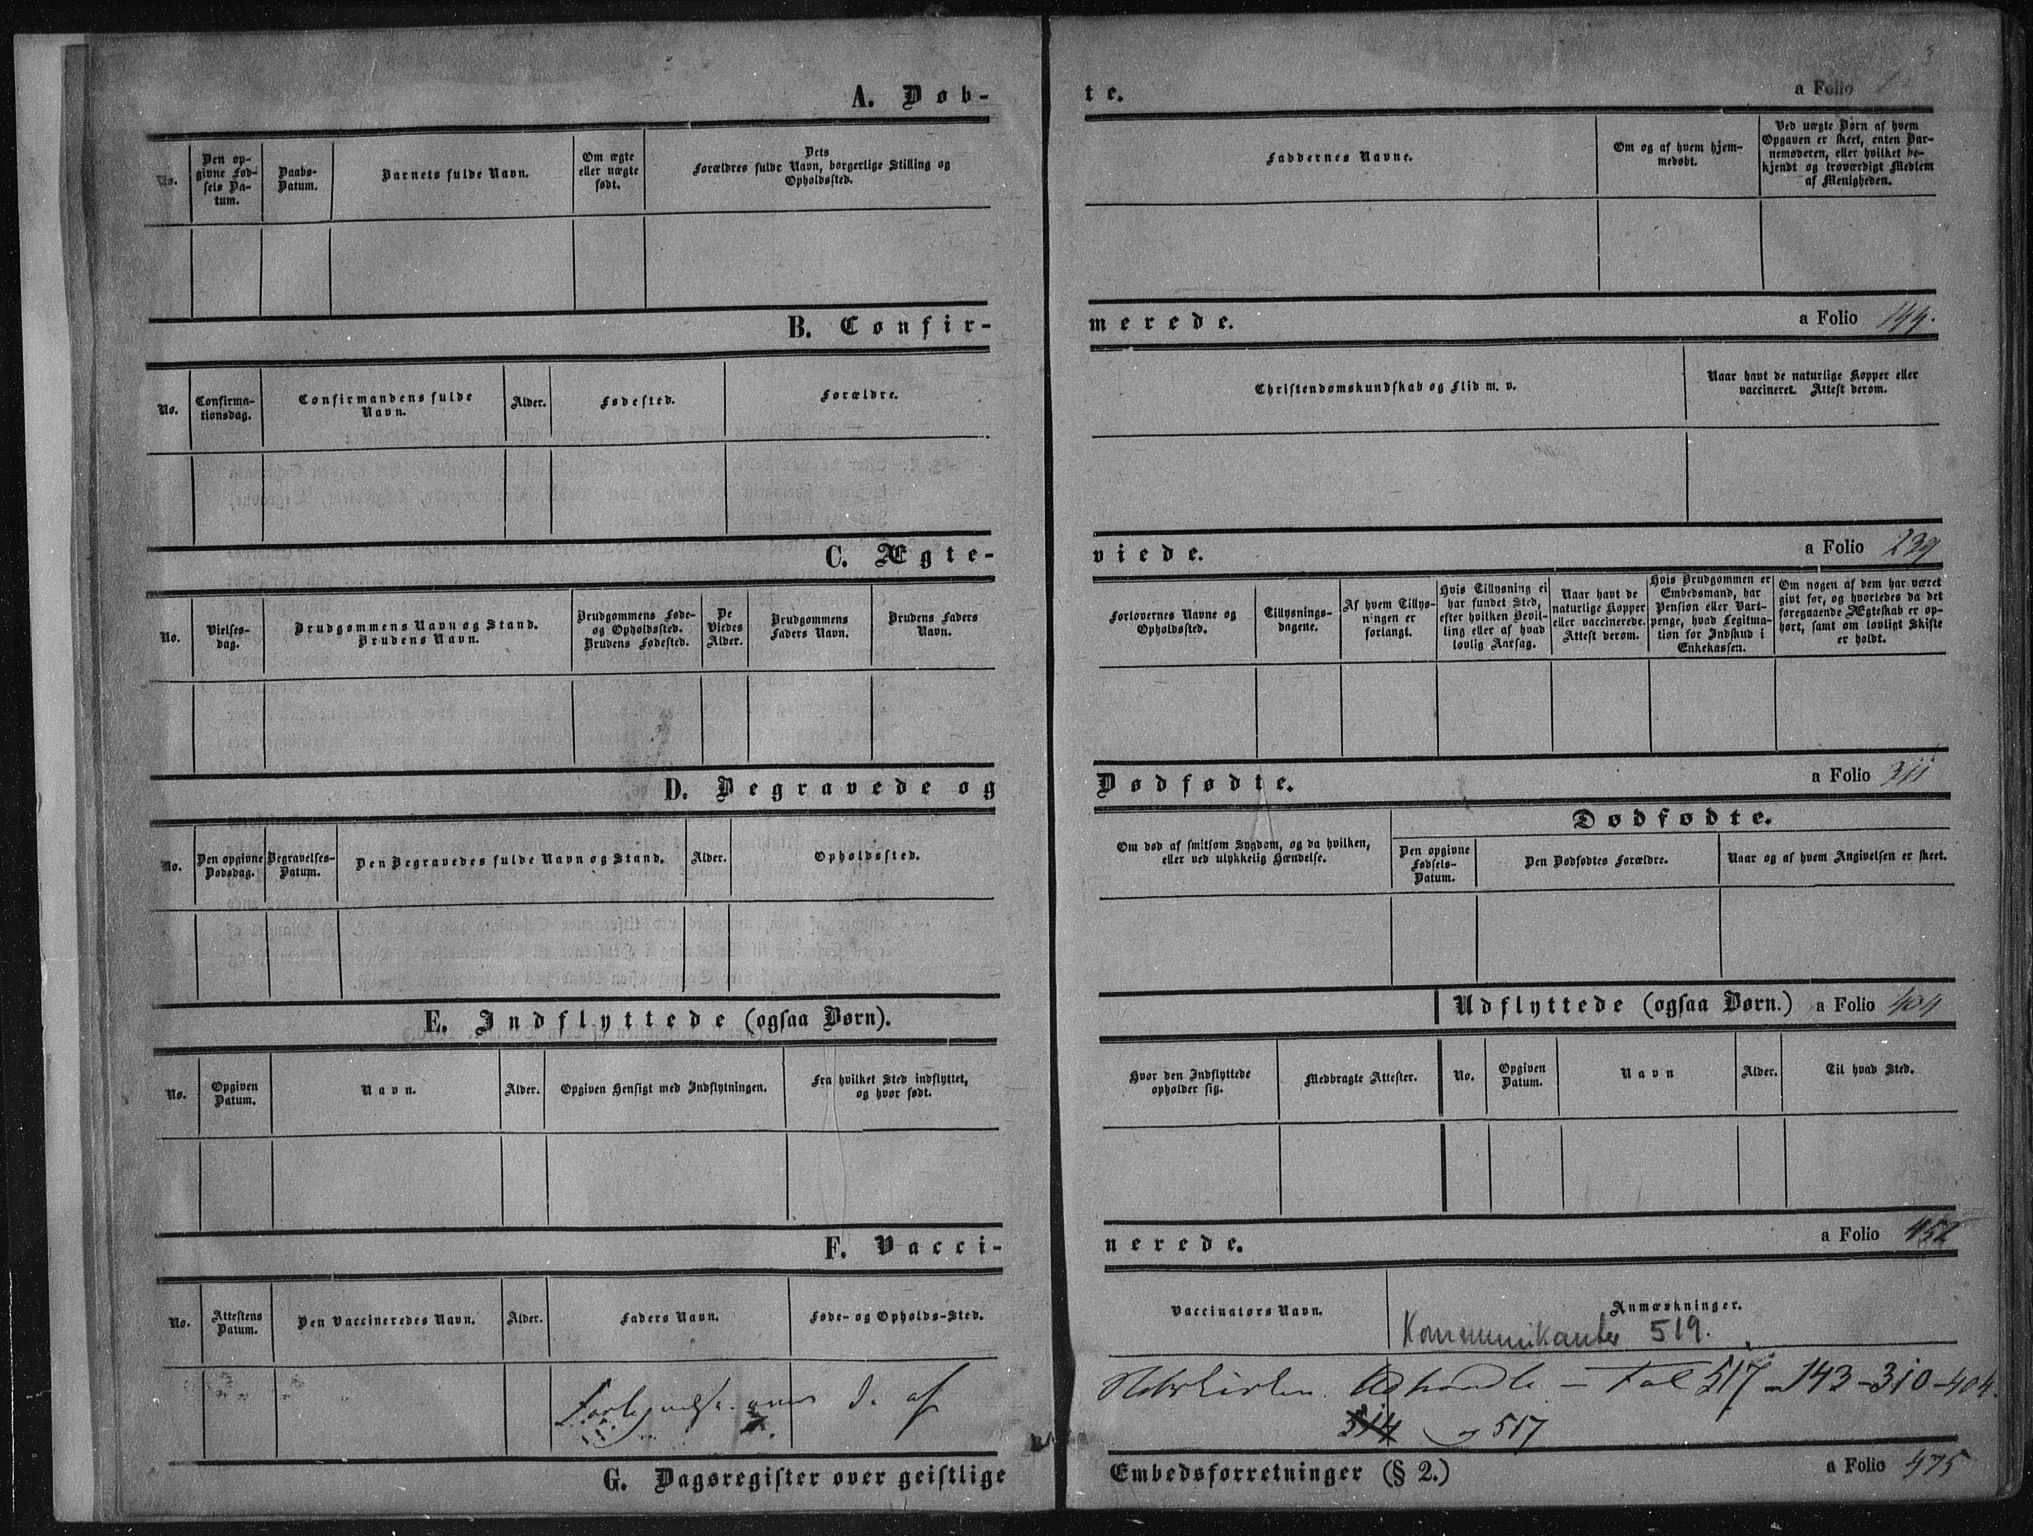 A. Døb-
te.
a Folio 1
3
No.
Den op-
givne Fød-
sels Da-
tum.
Daabs-
Datum.
Barnets fulde Navn.
Om ægte
eller uægte
født.
Dets
Forældres fulde Navn, borgerlige Stilling og
Opholdssted.
Faddernes Navne.
Om og af hvem hjem-
medøbt.
Ved uægte Børn af hvem
Opgaven er skeet, enten Bar-
nemoderen, eller hvilket be-
kjendt og troværdigt Medlem
af Menigheden.
B. Confir-
merede.
a Folio 144.
No.
Confirma-
tionsdag.
Confirmandens fulde
Navn.
Alder.
Fødested.
Forældre.
Christendomskundskab og Flid m. v.
Naar havt de naturlige Kopper eller
vaccineret. Attest derom.
C. Ægte-
viede.
a Folio 239
No.
Vielses-
dag.
Brudgommens Navn og Stand.
Brudens Navn.
Brudgommens Føde-
og Opholdssted.
Brudens Fødested.
De
Viedes
Alder.
Brudgommens
Faders Navn.
Brudens Faders
Navn.
Forlovernes Navne og
Opholdssted.
Tillysnings-
dagene.
Af hvem Tillys-
ningen er
forlangt.
Hvis Tillysning ei
har fundet Sted,
efter hvilken Bevil-
ling eller af hvad
lovlig Aarsag.
Naar havt de
naturlige Kopper
eller vaccinerede.
Attest derom.
Hvis Brudgommen er
Embedsmand, har
Pension eller Vart-
penge, hvad Legitima-
tion for Indskud i
Enkekassen.
Om nogen af dem har været
givt før, og hvorledes da det
foregaaende Ægteskab er op-
hørt, samt om lovligt Skifte
er holdt.
D. Begravede og
Dødfødte.
a Folio 311
No.
Den opgivne
Dødsdag.
Begravelses-
Datum.
Den Begravedes fulde Navn og Stand.
Alder.
Opholdssted.
Om død af smitsom Sygdom, og da hvilken,
eller ved ulykkelig Hændelse.
Dødfødte.
Den opgivne
Fødsels-
Datum.
Den Dødfødtes Forældre.
Naar og af hvem Angivelsen er skeet.
E. Indflyttede (ogsaa Børn).
Udflyttede (ogsaa Børn.) a Folio 404
No.
Opgiven
Datum.
Navn.
Alder.
Opgiven Hensigt med Indflytningen.
Fra hvilket Sted indflyttet,
og hvor født.
Hvor den Indflyttede
opholder sig.
Medbragte Attester.
No.
Opgiven
Datum.
Navn
Alder.
Til hvad Sted.
F. Vacci-
nerede.
a Folio 452
No.
Attestens
Datum.
Den Vaccineredes Navn.
Alder.
Faders Navn.
Føde- og Opholds-Sted.
Vaccinatørs Navn.
Anmærkninger.
Kommunikanter 519.
Fortegnelse over de af
517 - 143 - 310 - 404.
514 517
G. Dagsregister over geistlige
Embedsforretninger (§ 2.)
a Folio 475